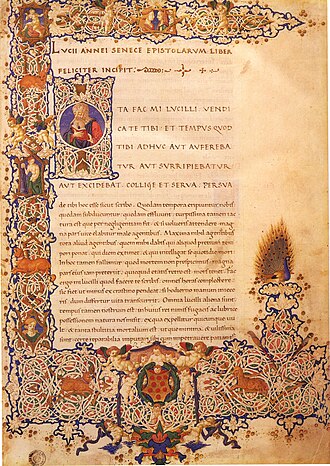 LVCII ANNEI SENECE EPISTOLARVM LIBER
FELICITER INCIPIT.
ITA FAC MI LVCILLI VENDI
CATE TIBI ET TEMPVS QVOD
TIBI ADHVC AVT AVFEREBA
TVR AVT SVRRIPIEBATVR
AVT EXCIDEBAT. COLLIGE ET SERVA. PERSVA
de tibi hoc esse sicut scribo. Quedam tempora eripiuntur nobis
quedam subducuntur: quedam effluunt: turpissima tamen iac
tura est que per negligentiam fit. & si uolueris attendere mag
na pars uite elabitur male agentibus. Maxima nihil agentibus
tota aliud agentibus. quem mihi dabis qui aliquod pretium tem
pori ponat. qui diem extimet. qui intelligat se quotidie mori.
In hoc enim fallimur quod mortem non prospicimus. magna
pars eius iam preteriit. quicquid etatis retro est mors tenet. Fac
ergo mi lucilli quod facere te scribis. omnes horas complectere
sic fiet ut minus ex crastino pendeas si hodierno manum iniece
ris dum differtur uita transcurrit. Omnia lucilli aliena sunt:
tempus tamen nostrum est. in huius rei unius fugacis ac lubrice
possessionem natura nos misit: ex qua expellit quicunque uult
& tanta stultitia mortalium est ut que minima & uilissima
sint certe reparabilia imputari sibi cum impetrauere